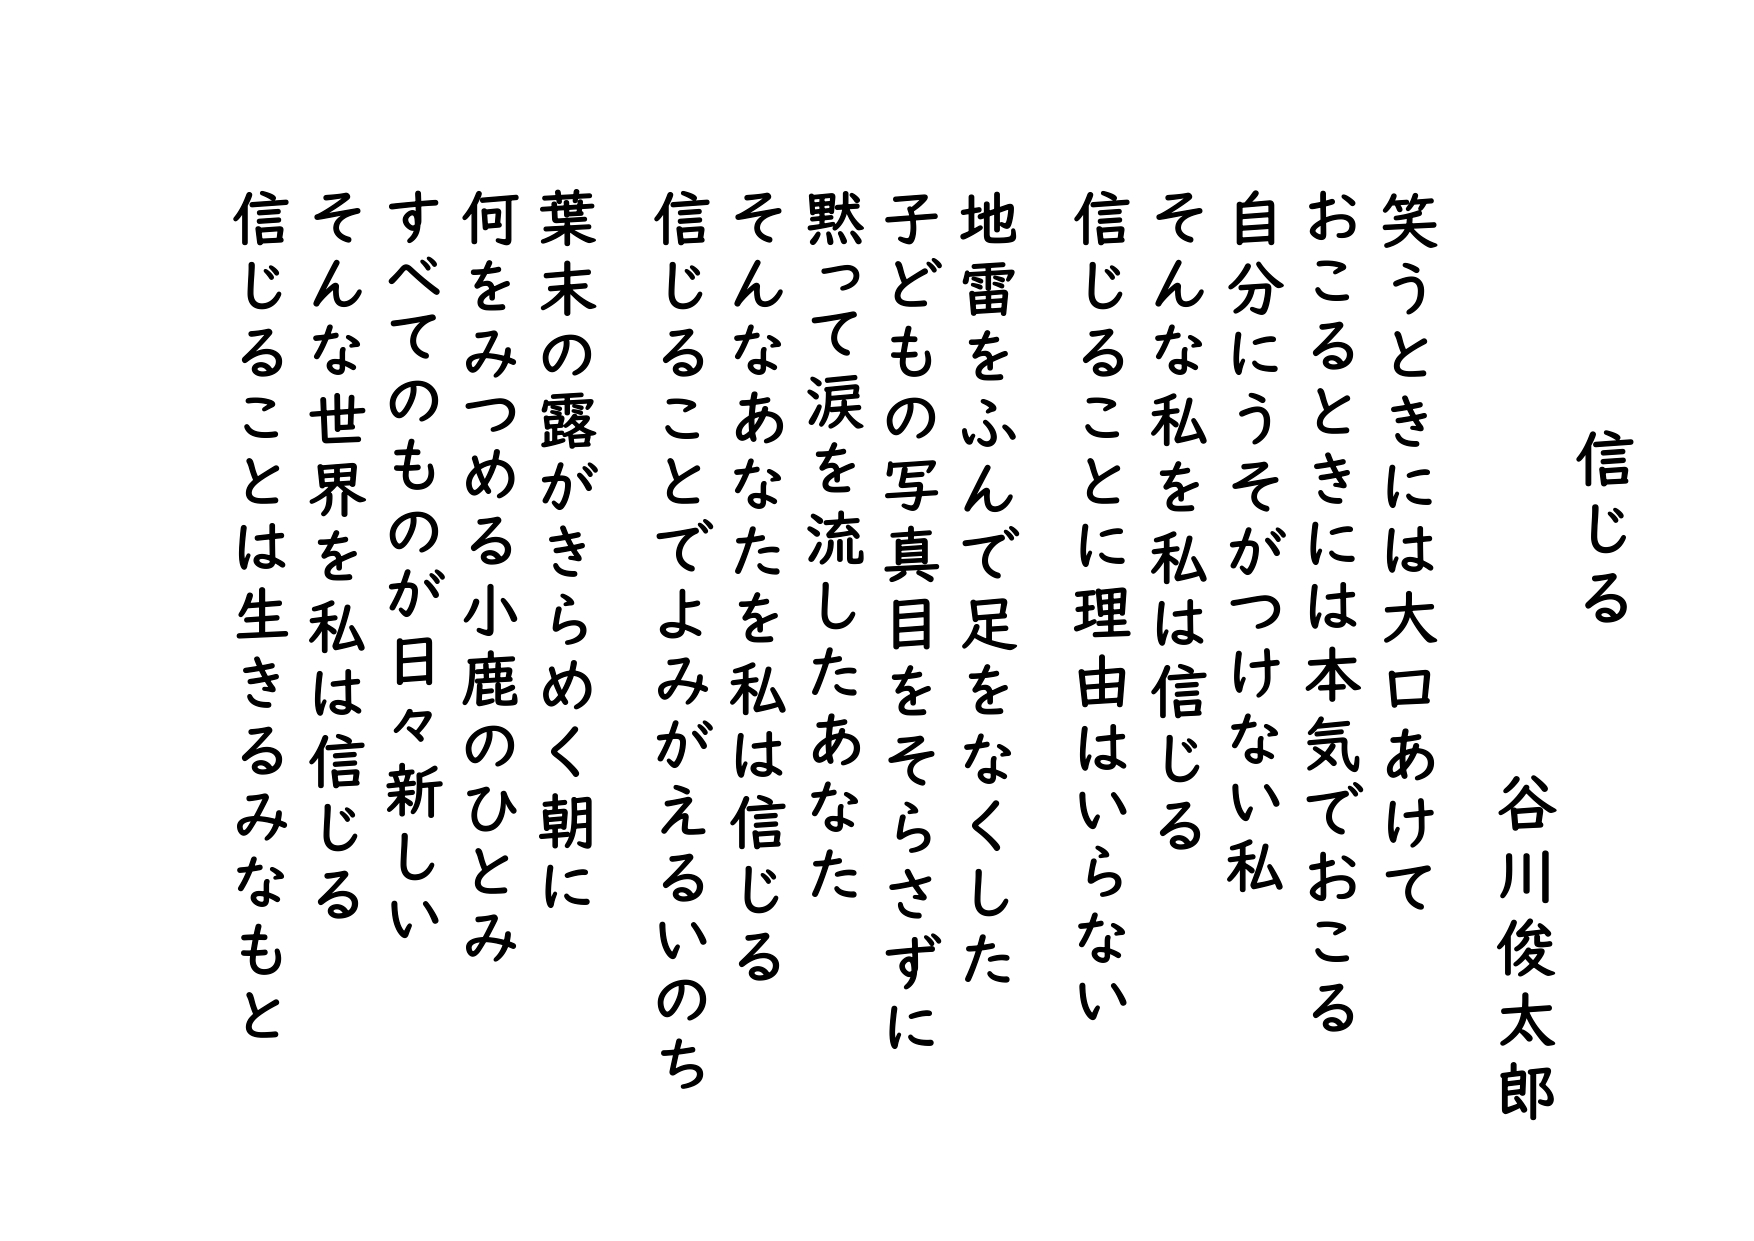 信じる
谷川俊太郎
笑うときには大口あけて
おこるときには本気でおこる
自分にうそがつけない私
そんな私を私は信じる
信じることに理由はいらない
地雷をふんで足をなくした
子どもの写真目をそらさずに
黙って涙を流したあなた
そんなあなたを私は信じる
信じることでよみがえるいのち
葉末の露がきらめく朝に
何をみつめる小鹿のひとみ
すべてのものが日々新しい
そんな世界を私は信じる
信じることは生きるみなもと